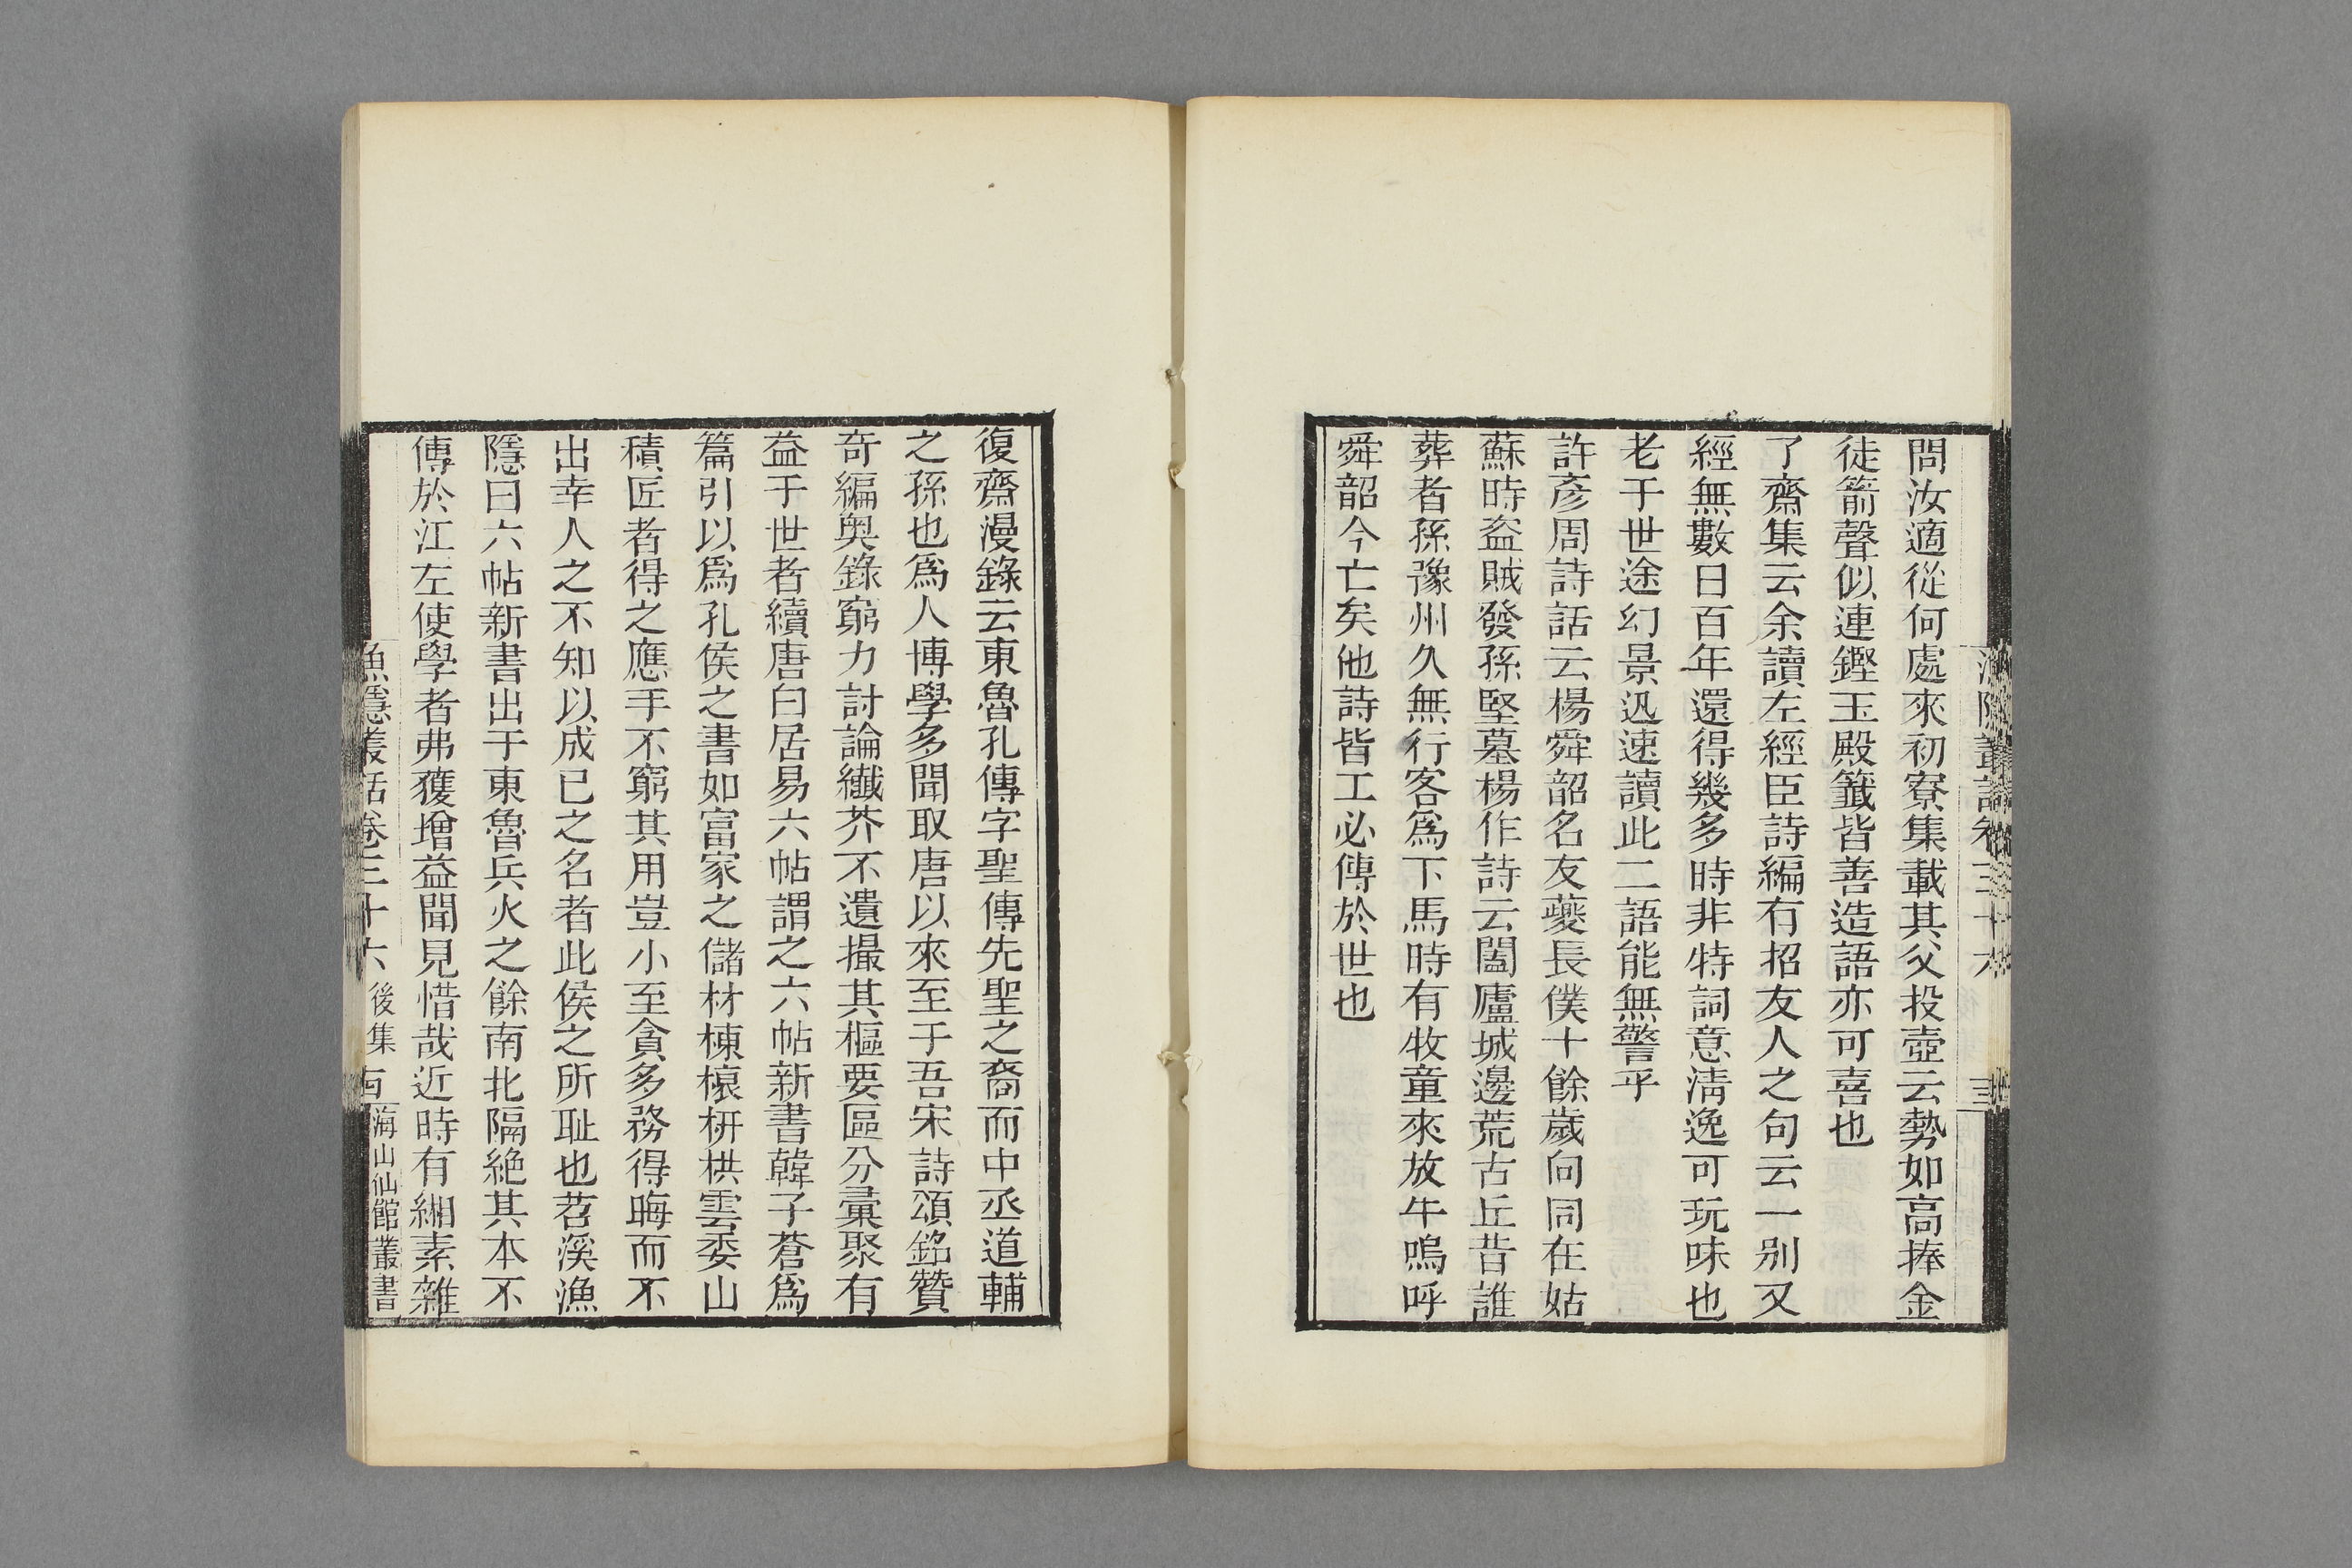 問汝適從何處來初寮集載其父投壺云勢如高捧金
徒箭聲似連鏗玉殿籤皆善造語亦可喜也
了齋集云余讀左經臣詩編有招友人之句云一別又
經無數日百年還得幾多時非特詞意清逸可玩味也
老于世途幻景迅速讀此二語能無警乎
許彥周詩話云楊舜韶名友夔長僕十餘歲向同在姑
蘇時盜賊發孫堅墓楊作詩云闔廬城邊荒古丘昔誰
葬者孫豫州久無行客爲下馬時有牧童來放牛嗚呼
舜韶今亡矣他詩皆工必傳於世也
復齋漫錄云東魯孔傳字聖傳先聖之裔而中丞道輔
之孫也爲人博學多聞取唐以來至于吾宋詩頌銘贊
奇編奧錄窮力討論纖芥不遺撮其樞要區分彙聚有
益于世者續唐白居易六帖謂之六帖新書韓子蒼爲
篇引以爲孔侯之書如富家之儲材棟榱枅栱雲委山
積匠者得之應手不窮其用豈小至貪多務得晦而不
出幸人之不知以成已之名者此侯之所耻也苕溪漁
隱曰六帖新書出于東魯兵火之餘南北隔絶其本不
傳於江左使學者弗獲增益聞見惜哉近時有緗素雜
漁隱叢話卷三十六 後集
海山仙館叢書